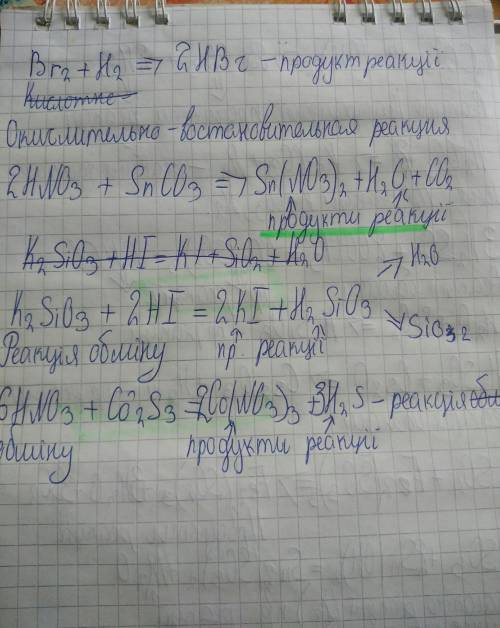 Br₂ + H₂ => 2HBr - продукт реакції
Кислотне
Окислительно-востановительная реакция
2HNO₃ + SnCO₃ => Sn(NO₃)₂ + H₂O + CO₂
продукти реакції
K₂SiO₃ + HI = KI + SiO₂ + H₂O
H₂O
K₂SiO₃ + 2HI = 2KI + H₂SiO₃
SiO₂
Реакція обміну пр. реакції
6HNO₃ + Co₂S₃ = 2Co(NO₃)₃ + 3H₂S - реакція
обміну продукти реакції